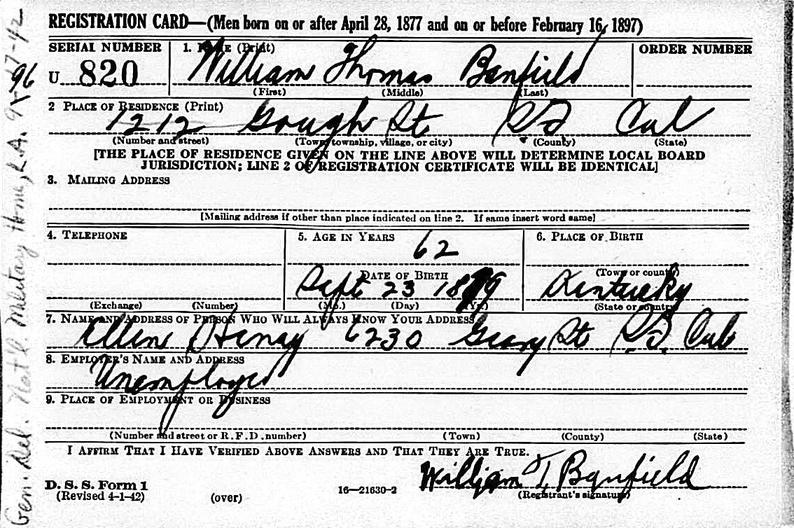 REGISTRATION CARD—(Men born on or after April 28, 1877 and on or before February 16, 1897)
SERIAL NUMBER 1. NAME (Print) ORDER NUMBER
U 820 William Thomas Banfield
(First) (Middle) (Last)
2 PLACE OF RESIDENCE (Print)
1212 Gough St S.F. Cal
(Number and street) (Town, township, village, or city) (County) (State)
[THE PLACE OF RESIDENCE GIVEN ON THE LINE ABOVE WILL DETERMINE LOCAL BOARD
JURISDICTION; LINE 2 OF REGISTRATION CERTIFICATE WILL BE IDENTICAL]
3. MAILING ADDRESS
[Mailing address if other than place indicated on line 2. If same insert word same]
4. TELEPHONE 5. AGE IN YEARS 6. PLACE OF BIRTH
62
DATE OF BIRTH (Town or county)
Sept 23 1879 Kentucky
(Exchange) (Number) (Mo.) (Day) (Yr.) (State or country)
7. NAME AND ADDRESS OF PERSON WHO WILL ALWAYS KNOW YOUR ADDRESS
Ellen Henay 6230 Geary St S.F. Cal
8. EMPLOYER'S NAME AND ADDRESS
Unemployed
9. PLACE OF EMPLOYMENT OR BUSINESS
(Number and street or R. F. D. number) (Town) (County) (State)
I AFFIRM THAT I HAVE VERIFIED ABOVE ANSWERS AND THAT THEY ARE TRUE.
William T Banfield
D. S. S. Form 1
(Revised 4-1-42) (over) 16—21630-2 (Registrant's signature)
Gen. Del. Nat'l. Military Home, L.A.